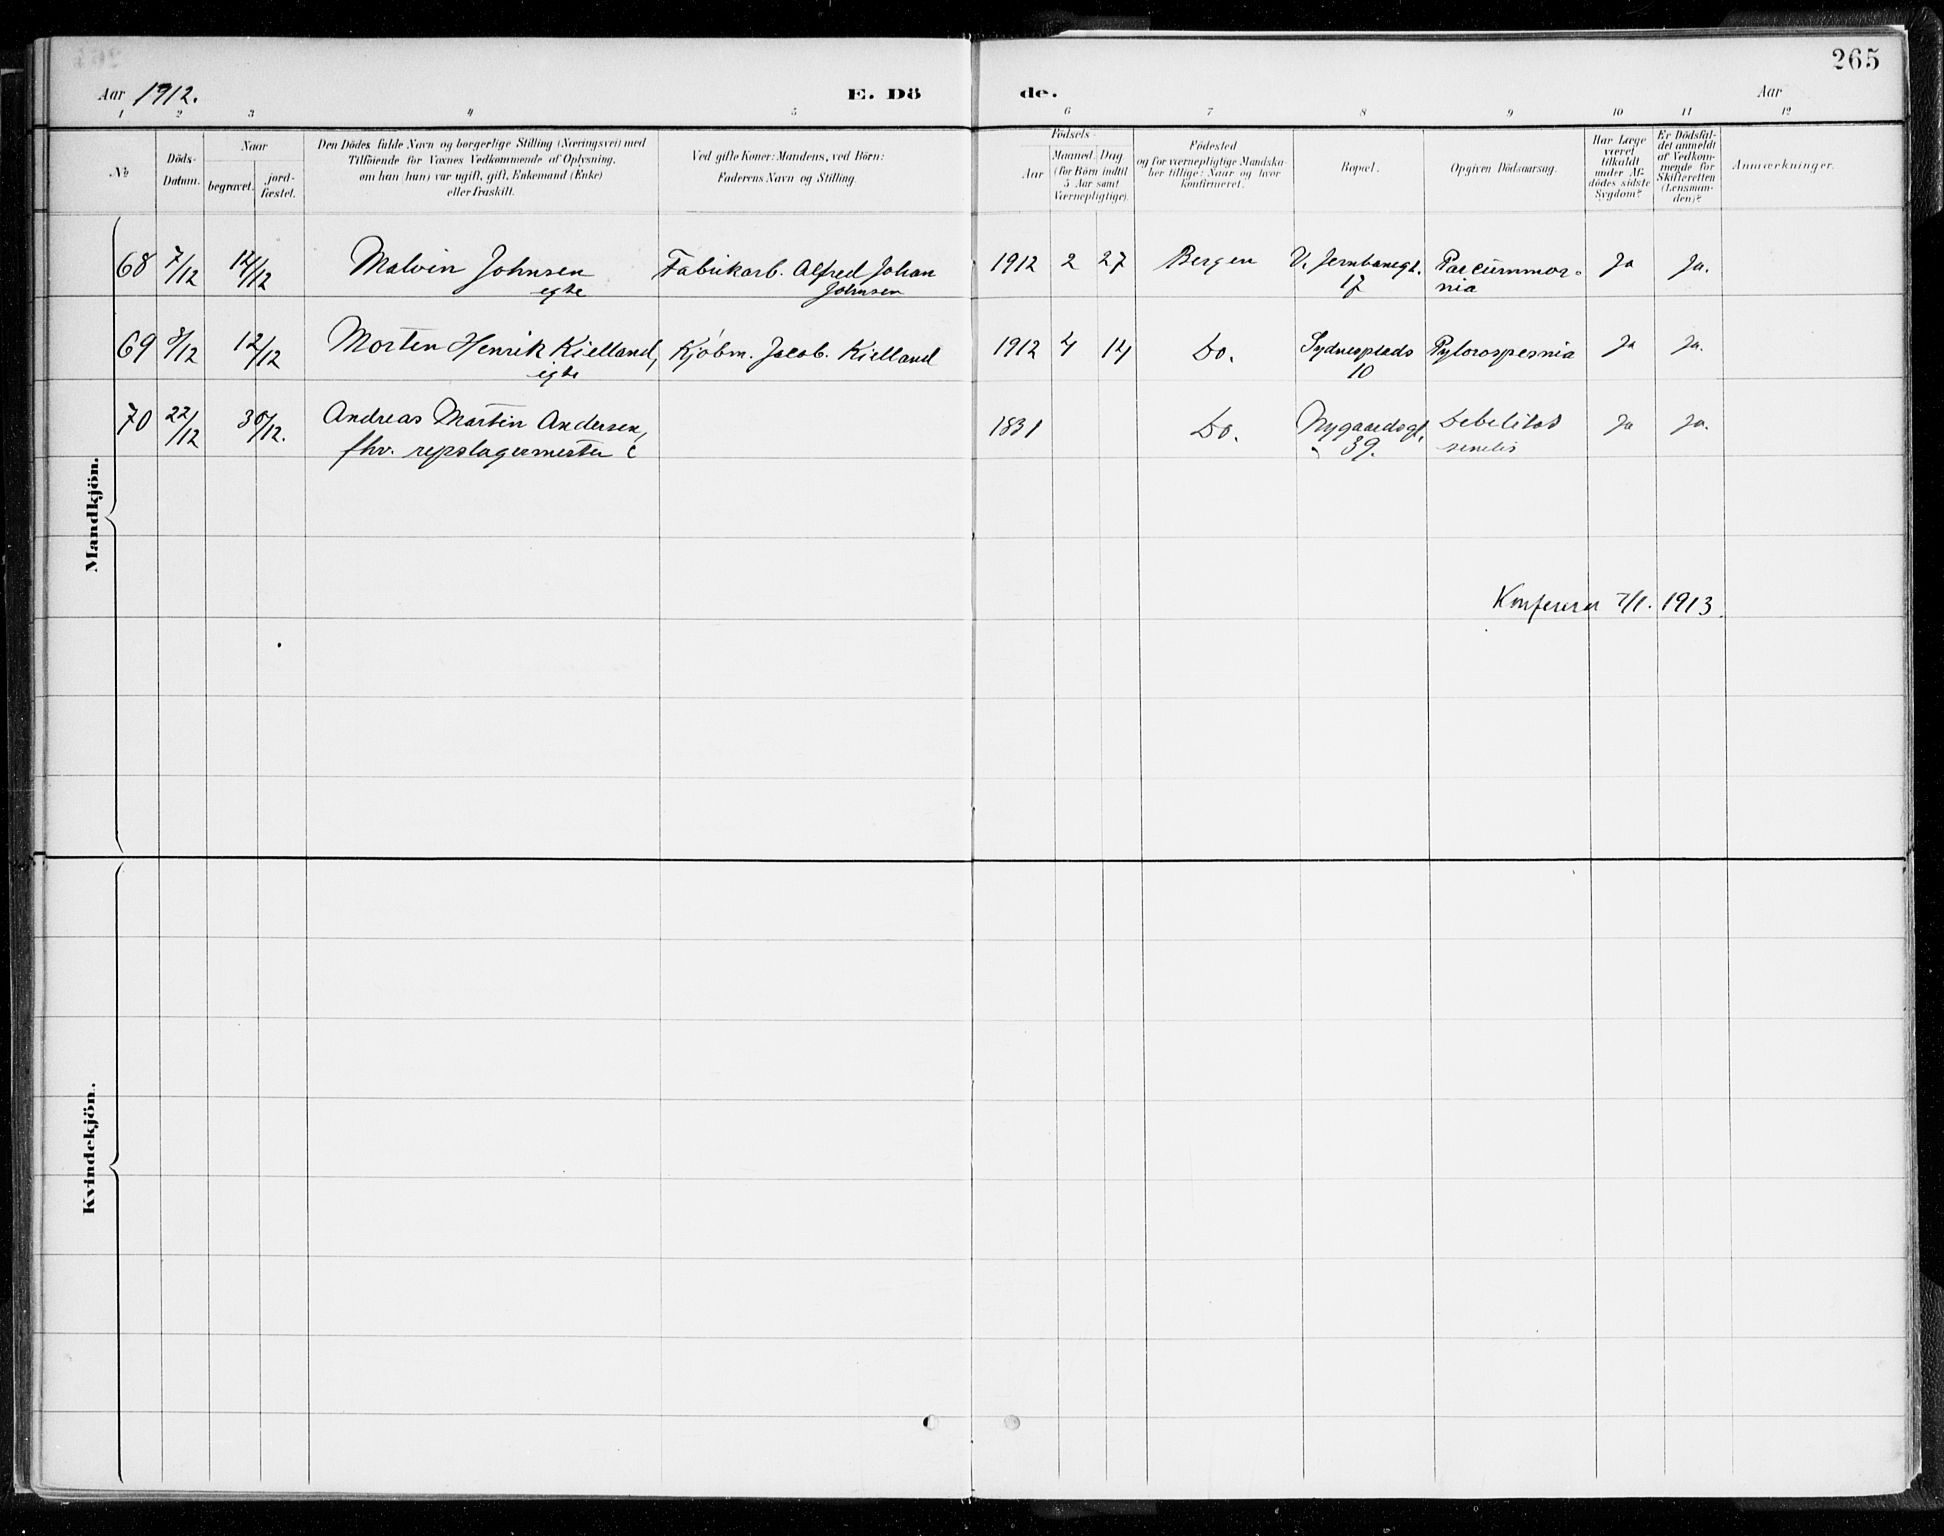 265
Aar 1912. E. Dö de. Aar
1 2 3 4 5 6 7 8 9 10 11 12
№
Döds-Datum.
Naar
begravet. jord-fæstet.
Den Dödes fulde Navn og borgerlige Stilling (Næringsvei) med
Tilföiende for Voxnes Vedkommende af Oplysning,
om han (hun) var ugift, gift, Enkemand (Enke)
eller fraskilt.
Ved gifte Koner: Mandens, ved Börn:
Faderens Navn og Stilling.
Födsels-
Aar
Maaned. Dag
(for Börn indtil
5 Aar samt
Værnepligtige).
Födested
og for værnepligtige Mandska-
ber tillige: Naar og hvor
konfirmeret.
Bopæl.
Opgiven Dödsaarsag.
Har Læge
været
tilkaldt
under Af-
dödes sidste
Sygdom?
Er Dödsfal-
det anmeldt
af Vedkom-
mende for
Skifteretten
(Lensman-
den)?
Anmærkninger.
Mandkjön.
68 7/12 14/12 Malvin Johnsen Fabrikarb. Alfred Johan 1912 2 27 Bergen V. Jernbanegt. Ja Ja.
egte Johnsen 17 nia
69 8/12 12/12 Morten Henrik Kielland, Kjøbm. Jacob. Kielland 1912 4 14 Do. Sydnesplads Ja Ja.
egte 10
70 22/12 30/12. Andreas Martin Andersen, 1831 Do. Nygaardsgt. Debelitas Ja Ja.
fhv. repslagermester 39. senilis
7/1. 1913.
Kvindekjön.